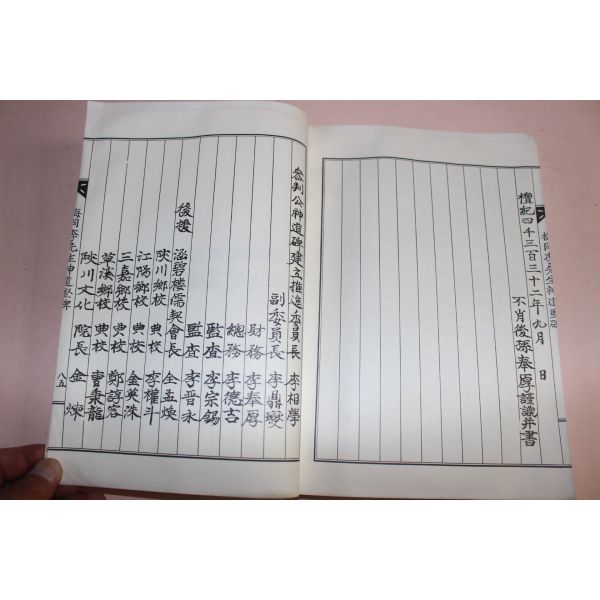 檀紀四千三百三十二年 九月 日
不肖後孫奉厚謹識并書
參判公神道碑建立推進委員長 李相學
副委員長 李鼎燮
財務 李奉厚
總務 李德吉
監査 李宗錫
監査 李晋永
後援 涵碧樓儒契會長 全孟煥
陜川鄕校 典校 李權斗
江陽鄕校 典校 金英洙
三嘉鄕校 典校 鄭諄容
草溪鄕校 典校 賣秉龍
陜川文化院長 金煉
先生神道碑
八五